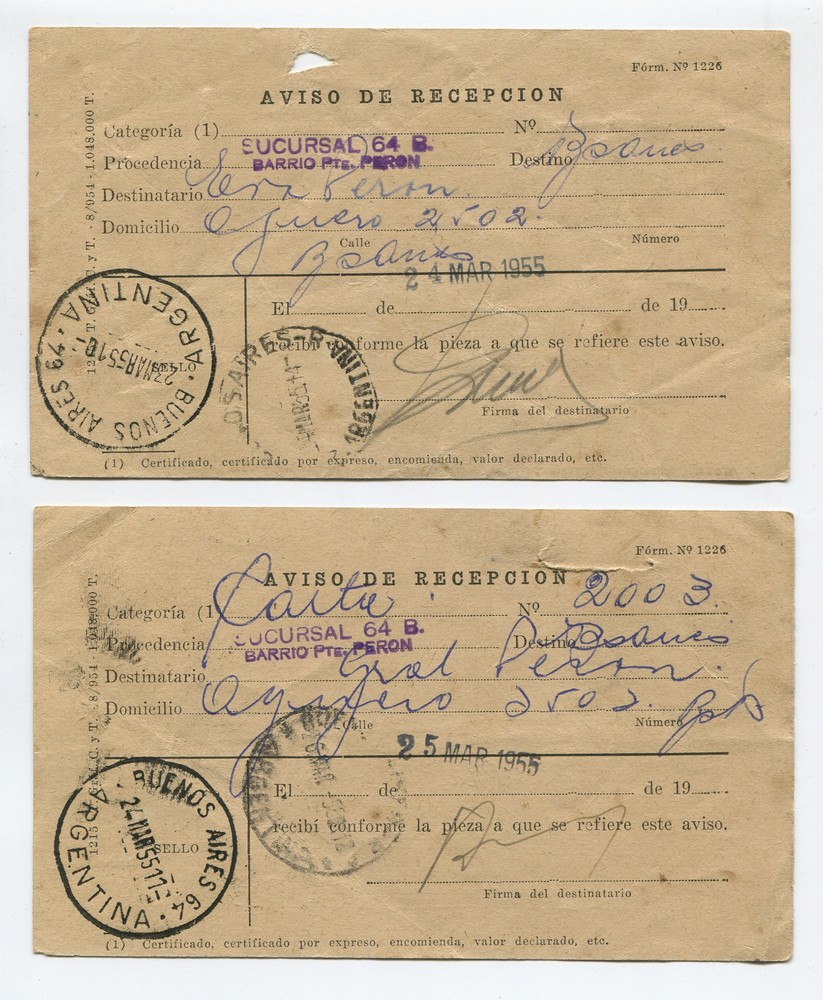 Fórm. Nº 1226
AVISO DE RECEPCION
Categoría (1) Nº
SUCURSAL 64 B.
BARRIO Pte. PERON
Procedencia Destino Bsaires
Destinatario Eva Peron.
Domicilio Aguero 2502.
Calle Número
Bsaires
24 MAR 1955
El de de 19
recibí conforme la pieza a que se refiere este aviso.
Firma del destinatario
SELLO
BUENOS AIRES 64 · ARGENTINA ·
23MAR5518
BS.AIRES-R ARGENTINA
(1) Certificado, certificado por expreso, encomienda, valor declarado, etc.
8/954 - 1.048.000 T.
Fórm. Nº 1226
AVISO DE RECEPCION
Categoría (1 Carta. Nº 2003.
SUCURSAL 64 B.
BARRIO Pte. PERON
Procedencia Destino Bsaires
Destinatario Gral Peron.
Domicilio Aguero 2502.
Calle Número
25 MAR 1955
El de de 19
recibí conforme la pieza a que se refiere este aviso.
Firma del destinatario
SELLO
BUENOS AIRES 64 · ARGENTINA ·
24MAR5511
(1) Certificado, certificado por expreso, encomienda, valor declarado, etc.
8/954 - 1.048.000 T.